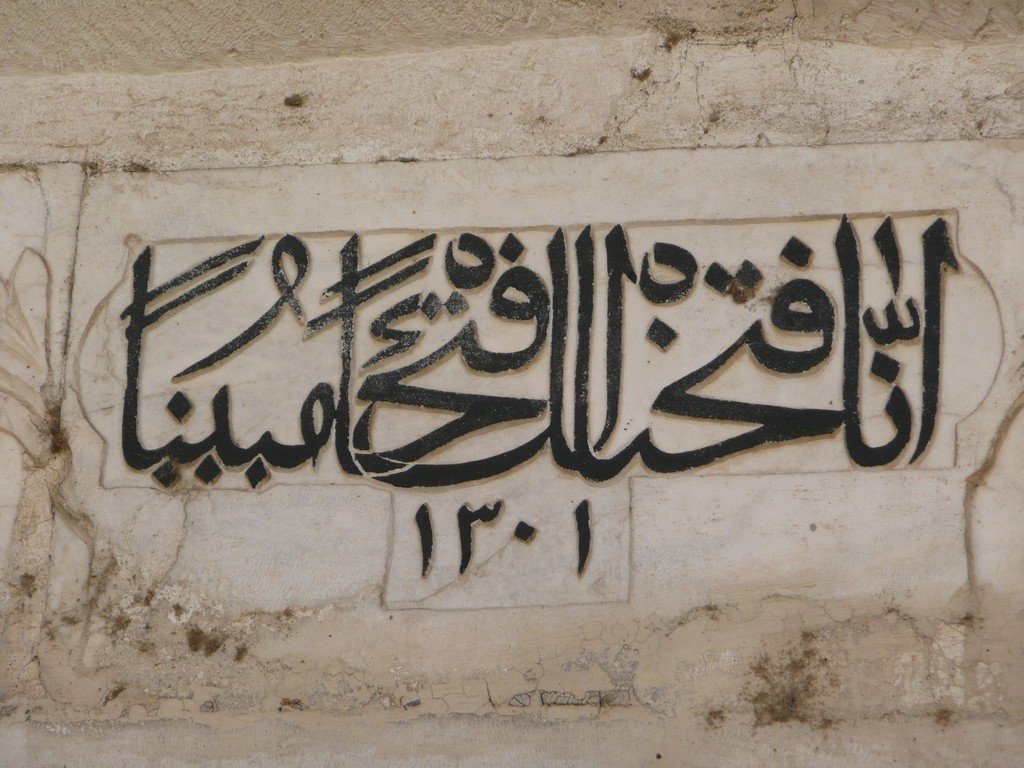 انا فتحنا لك فتحًا مبينًا
١٣٠١